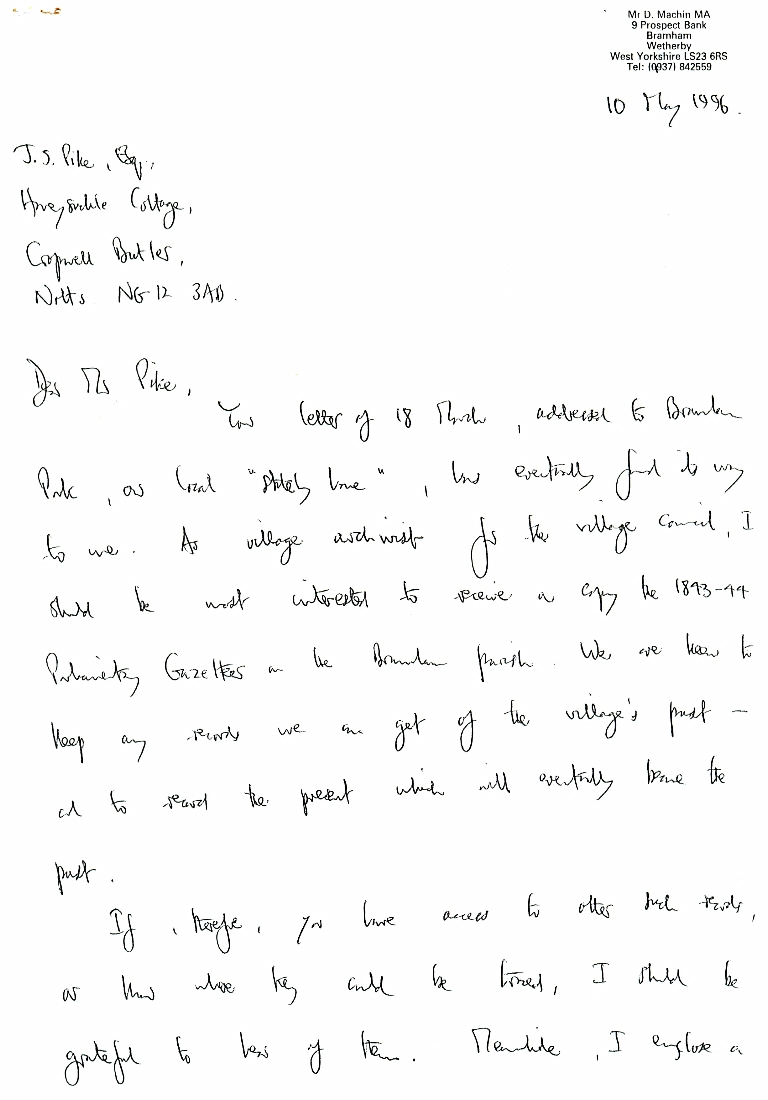 Mr D. Machin MA
9 Prospect Bank
Bramham
Wetherby
West Yorkshire LS23 6RS
Tel: (0937) 842559
10 May 1996.
J. S. Pike, Esq.,
Honeysuckle Cottage,
Cropwell Butler,
Notts NG12 3AD.
Dear Mr Pike,
Your letter of 18 March, addressed to Bramham
Park, as local "stately home", has eventually found its way
to me. As village archivist for the village council, I
should be most interested to receive a copy the 1843-44
Parliamentary Gazetteer on the Bramham parish. We are keen to
keep any records we can get of the village's past –
and to record the present which will eventually become the
past.
If, therefore, you have access to other such records,
or know where they could be traced, I should be
grateful to hear of them. Meanwhile, I enclose a